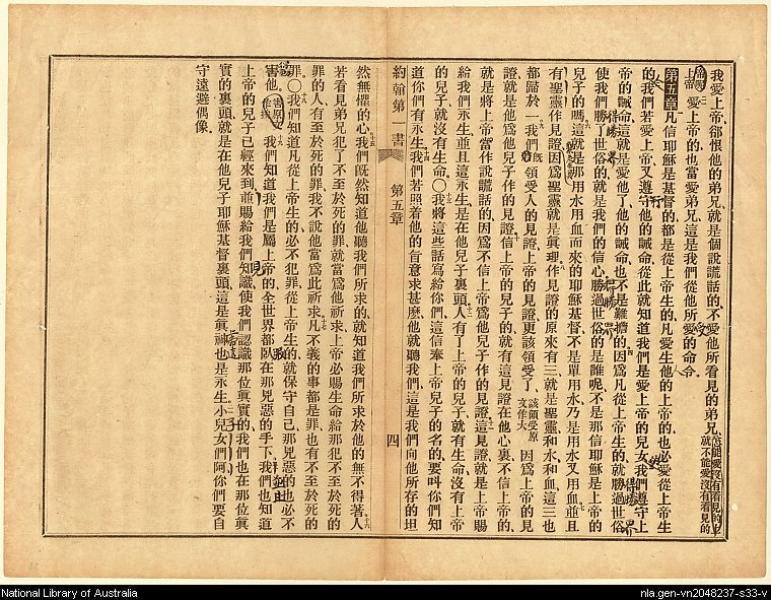 我愛上帝卻恨他的弟兄、就是個說謊話的、不愛他所看見的弟兄、怎能愛沒有看見的上
就不能愛沒有看見的
上帝、愛上帝的也當愛弟兄、這是我們從他所受的命令、
第五章 凡信耶穌是基督的都是從上帝生的、凡愛生他的上帝的也必愛從上帝生
的、我們若愛上帝又遵守他的誡命、從此就知道我們是愛上帝的兒女、我們遵守上
帝的誡命、這就是愛他了、他的誡命也不是難擔的、因爲凡從上帝生的、就勝過世俗
使我們勝了世俗的、就是我們的信心、勝過世俗的是誰呢、不是那信耶穌是上帝的
兒子的嗎、這就是那用水用血而來的耶穌基督、不是單用水、乃是用水又用血、並且
有聖靈作見證、因爲聖靈就是眞理、作見證的原來有三、就是聖靈和水和血、這三也
都歸於一、我們既領受人的見證、上帝的見證更該領受了、該領受原文作大 因爲上帝的見
證就是他爲他兒子作的見證、信上帝的兒子的、就有這見證在他心裏、不信上帝的、
就是將上帝當作說謊話的、因爲不信上帝爲他兒子作的見證、這見證就是上帝賜
給我們永生、並且這永生是在他兒子裏頭、人有了上帝的兒子、就有生命、沒有上帝
的兒子、就沒有生命、〇我將這些話寫給你們這信奉上帝兒子的名的、要呌你們知
道你們有永生、我們若照着他的旨意求甚麼、他就聽我們、這是我們向他所存的坦
約翰第一書 第五章 四
然無懼的心、我們既然知道他聽我們所求的、就知道我們所求於他的無不得著、人
若看見弟兄犯了不至於死的罪、就當爲他祈求、上帝必賜生命給那犯不至於死的
罪的人、有至於死的罪、我不說他當爲此祈求、凡不義的事都是罪、也有不至於死的
罪、〇我們知道凡從上帝生的、必不犯罪、從上帝生的、就保守自己、那兇惡的也必不
害他、我們知道我們是屬上帝的、全世界都臥在那兇惡的手下、我們也知道
上帝的兒子已經來到、並賜給我們知識、使我們認識那位眞實的、我們也在那位眞
實的裏頭、就是在他兒子耶穌基督裏頭、這是眞神也是永生、小兒女們阿、你們要自
守遠避偶像、
National Library of Australia
nla.gen-vn2048237-s33-v